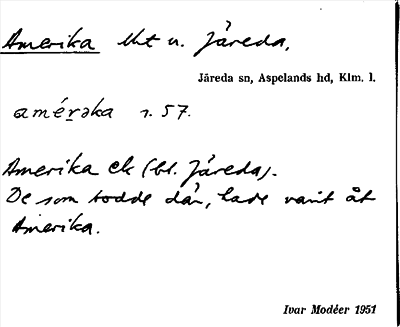 Amerika lht u. Järeda.
Järeda sn, Aspelands hd, Klm. l.
amérəka r. 57.
Amerika ek (bl. Järeda).
De som bodde där, hade varit åt
Amerika.
Ivar Modéer 1951